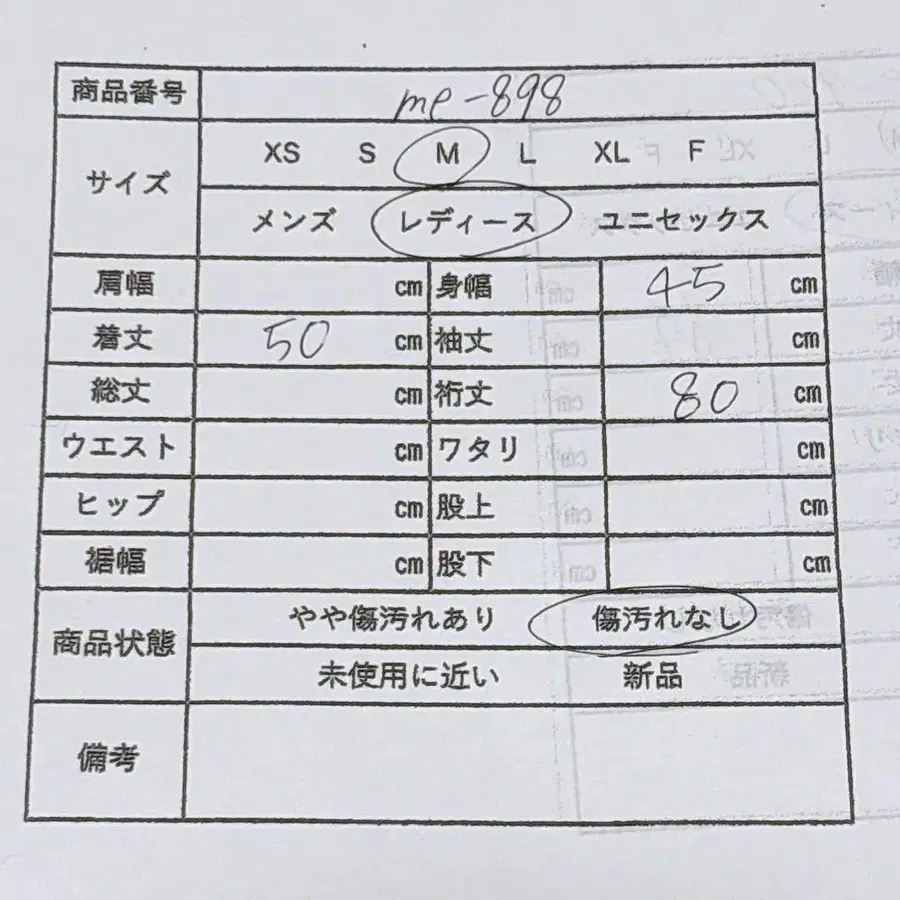 商品番号 me-898
サイズ XS S M L XL F
メンズ レディース ユニセックス
肩幅 cm 身幅 45 cm
着丈 50 cm 袖丈 cm
総丈 cm 裄丈 80 cm
ウエスト cm ワタリ cm
ヒップ cm 股上 cm
裾幅 cm 股下 cm
商品状態 やや傷汚れあり 傷汚れなし
未使用に近い 新品
備考